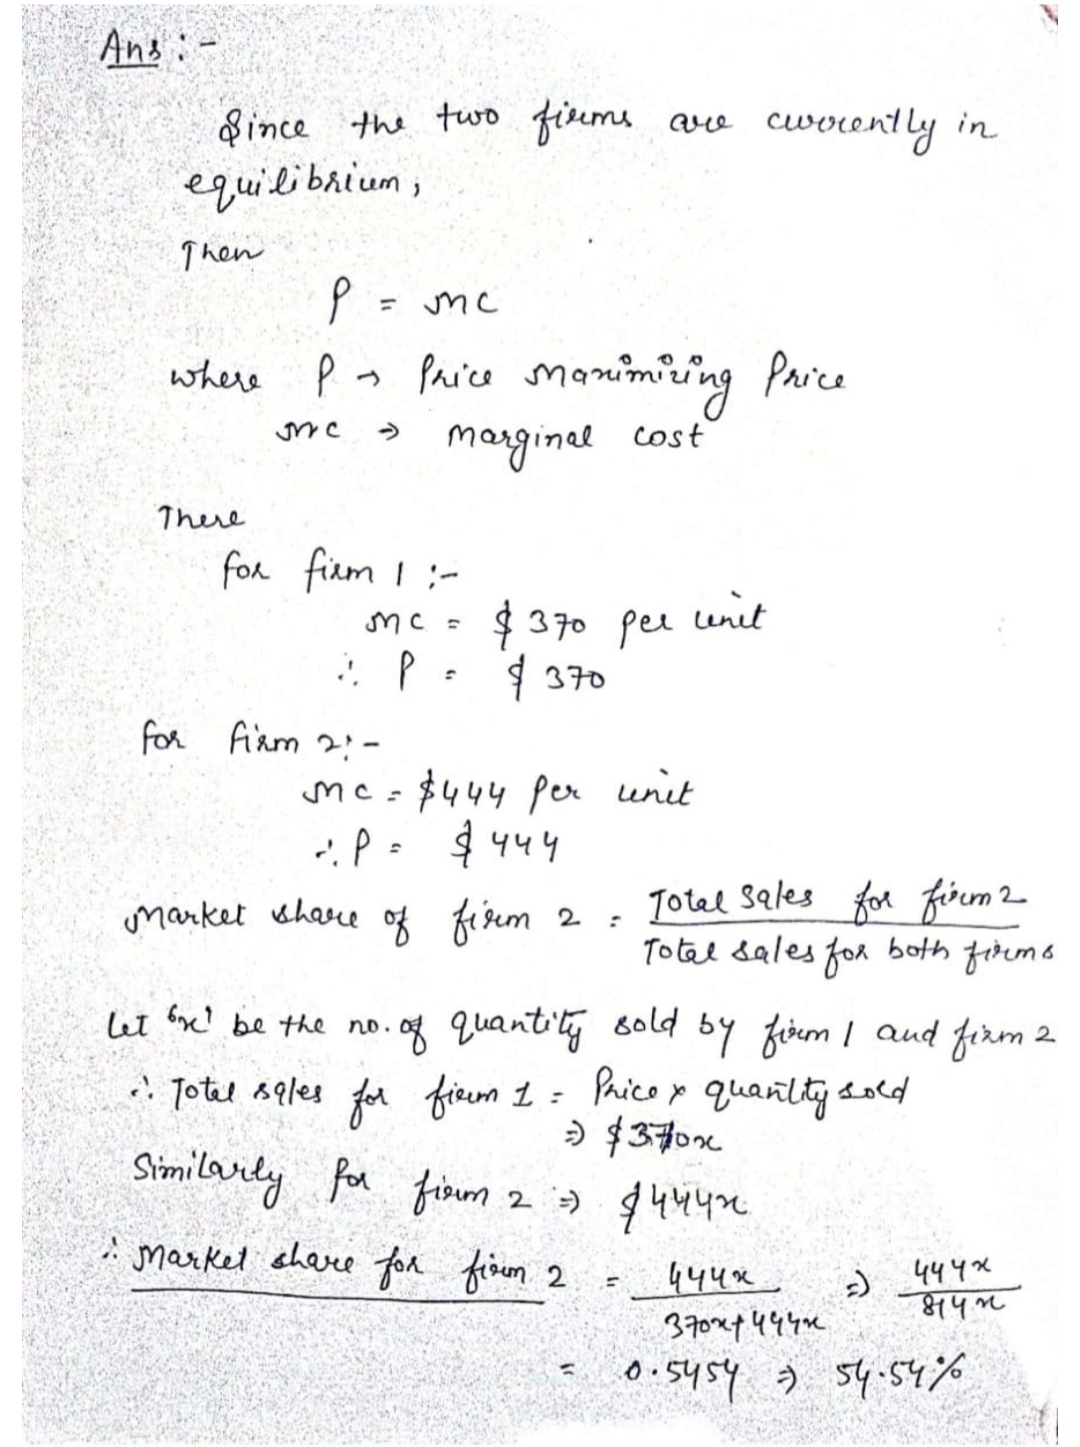 Ans :-
Since the two firms are currently in
equilibrium,
Then
P = mc
where P → Price maximizing Price
mc → marginal cost
There
for firm 1 :-
mc = $370 per unit
∴ P = $370
for firm 2:-
mc = $444 per unit
∴ P = $444
Market share of firm 2 = Total sales for firm 2 / Total sales for both firms
Let 'x' be the no. of quantity sold by firm 1 and firm 2
∴ Total sales for firm 1 = Price x quantity sold
⇒ $370x
Similarly for firm 2 ⇒ $444x
∴ Market share for firm 2 = 444x / 370x+444x ⇒ 444x / 814x
= 0.5454 ⇒ 54.54%